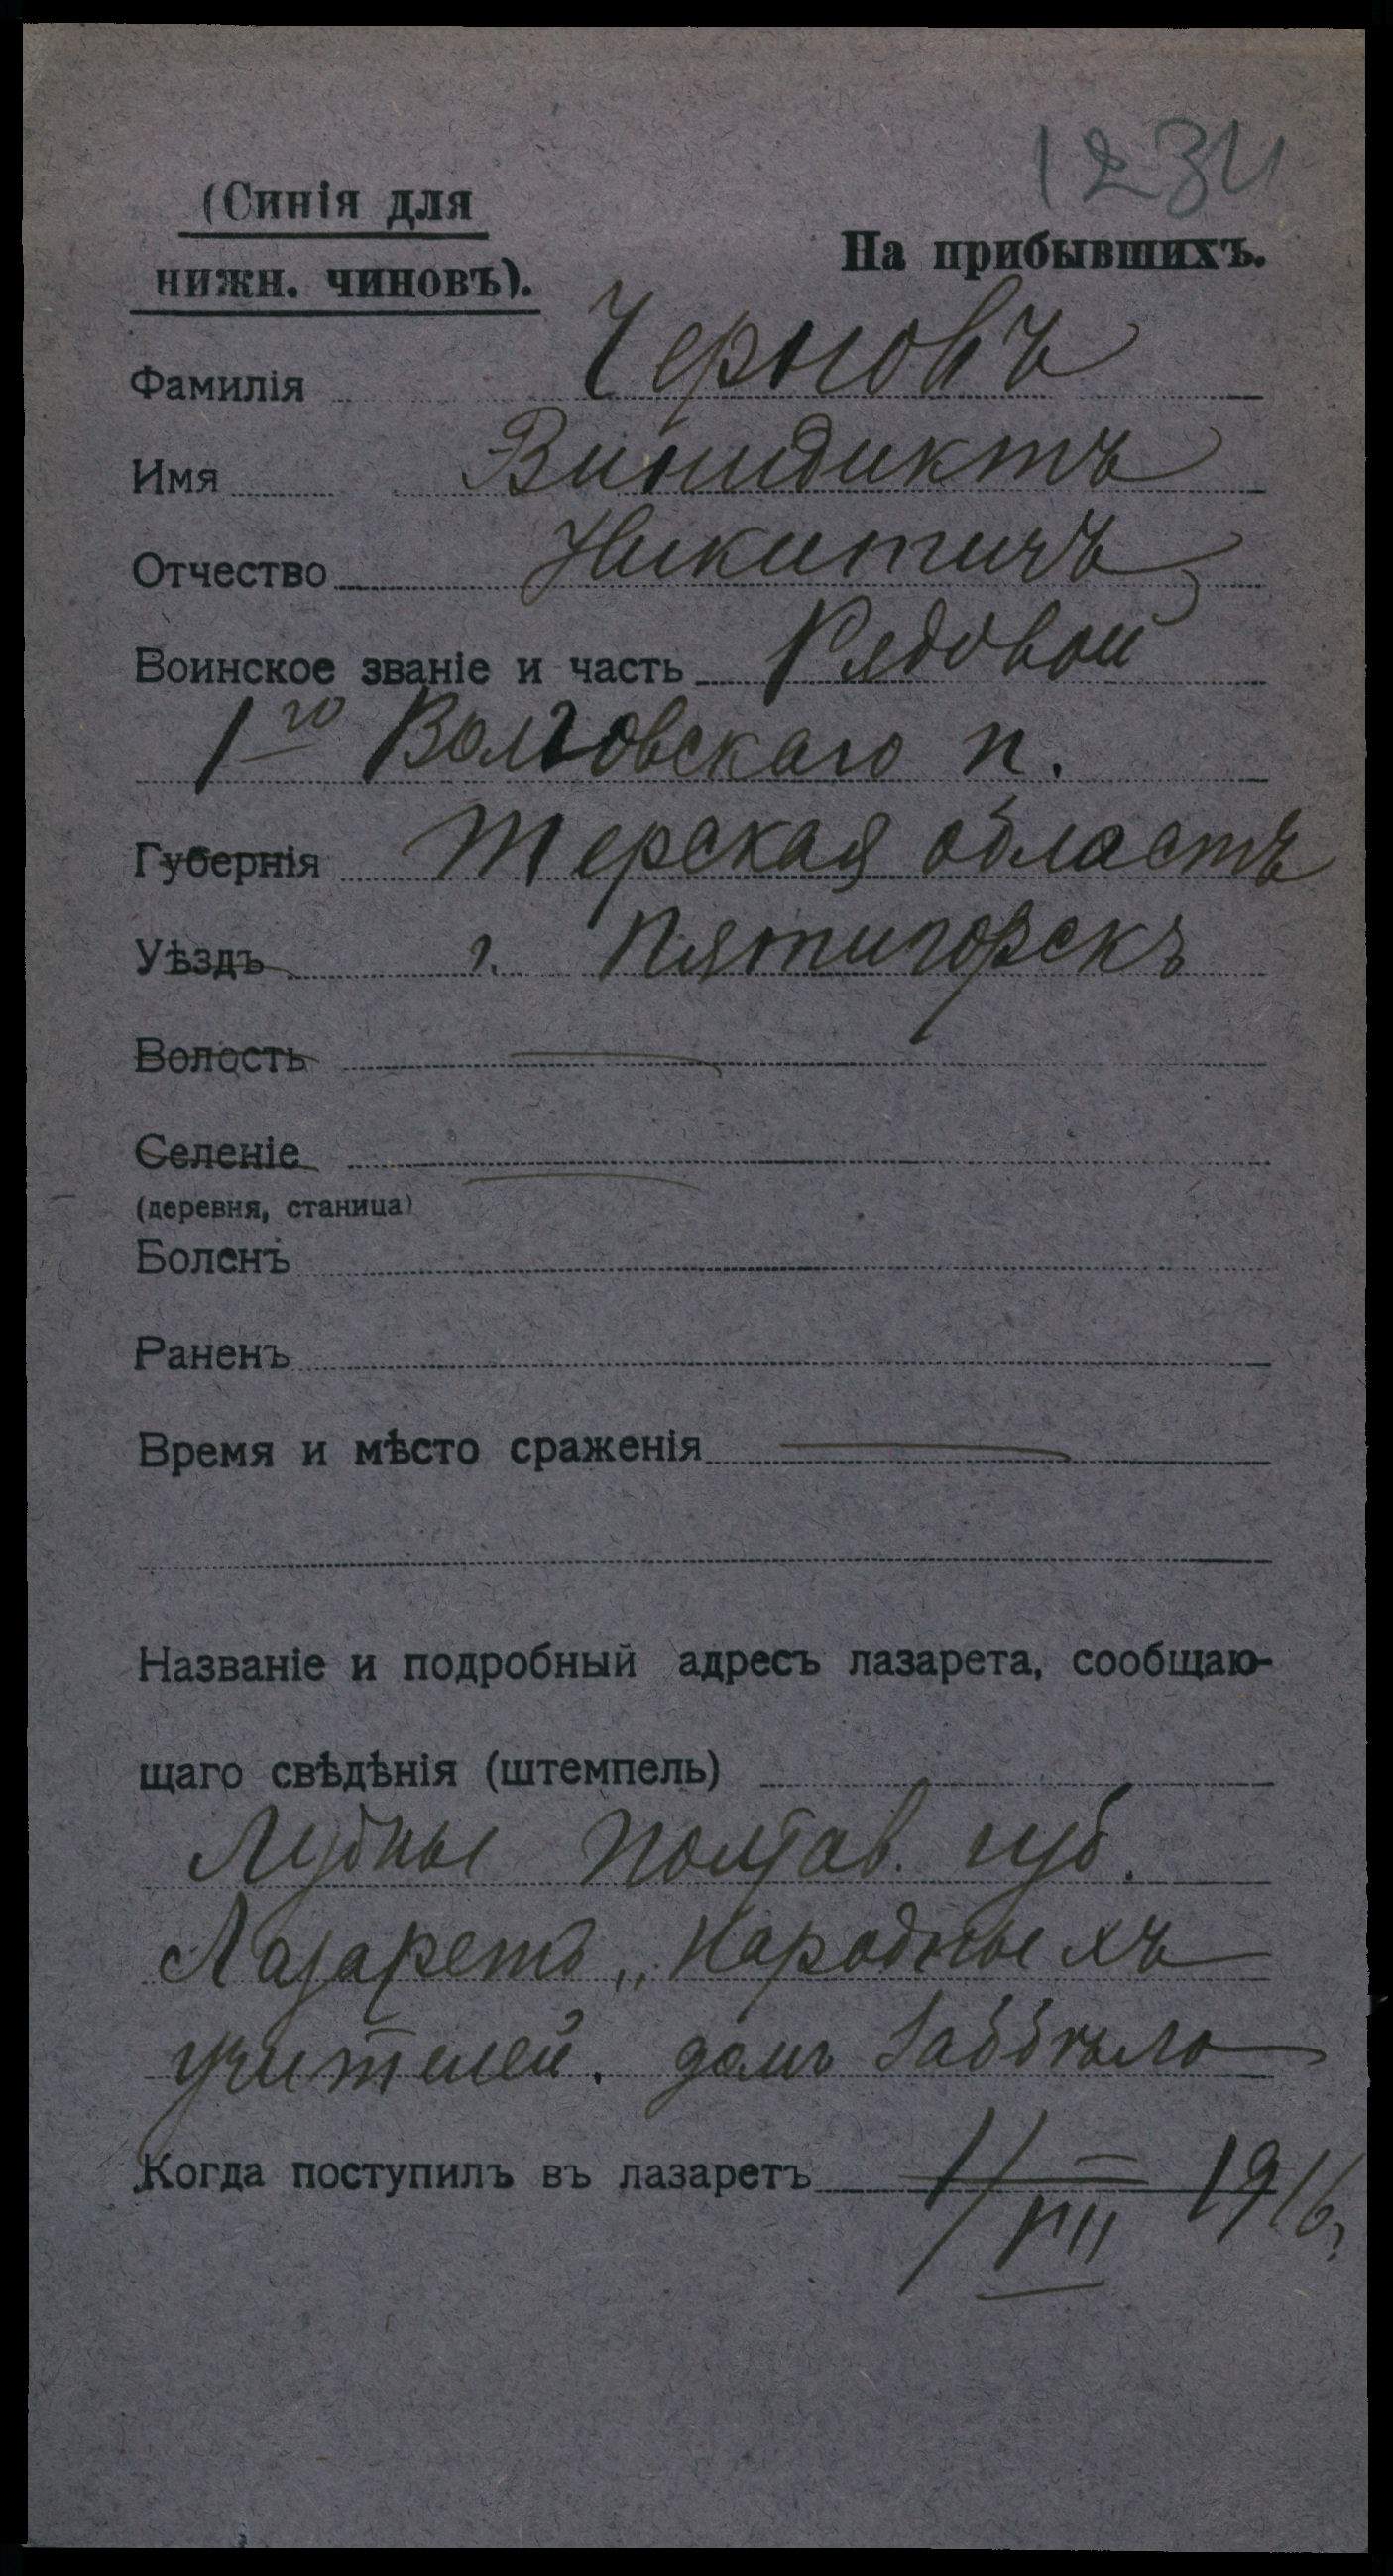 1234
(Синія для
нижн. чиновъ).
На прибывшихъ.
Фамилія Черновъ
Имя Винидиктъ
Отчество Никитичъ
Воинское званіе и часть Рядовой
1го Волговскаго п.
Губернія Терская область
Уѣздъ г. Пятигорскъ
Волость
Селеніе
(деревня, станица)
Боленъ
Раненъ
Время и мѣсто сраженія
Названіе и подробный адресъ лазарета, сообщаю-
щаго свѣдѣнія (штемпель)
Лубны Полтав. губ.
Лазаретъ „Народныхъ
учителей. домъ
Когда поступилъ въ лазаретъ 1/VIII 1916г